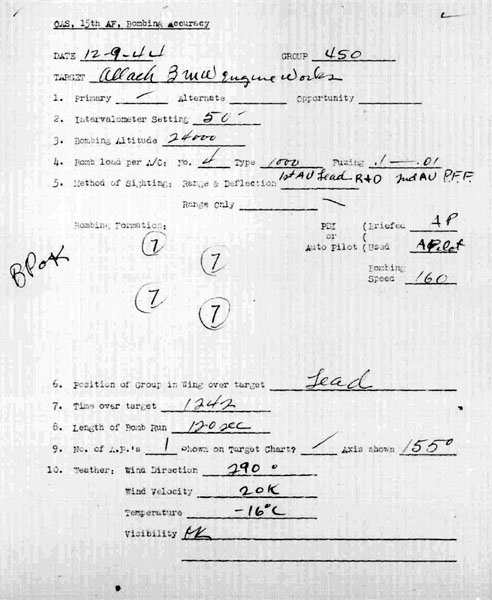 OAS, 15th AF, Bombing Accuracy
DATE 12-9-44 GROUP 450
TARGET Allach BMW Engine Works
1. Primary ✓ Alternate Opportunity
2. Intervalometer Setting 50'
3. Bombing Altitude 24000
4. Bomb load per A/C: No. 4 Type 1000 Fuzing .1 — .01
5. Method of Sighting: Range & Deflection 1st AU Lead R+D 2nd AU P.F.F.
Range Only
Bombing Formation: PDI (Briefed AP
or (
Auto Pilot (Used A Pilot
7 7
7 7
Bombing
Speed 160
BPOK
6. Position of Group in Wing over target Lead
7. Time over target 1242
8. Length of Bomb Run 120 sec
9. No. of A.P.'s 1 Shown on Target Chart? ✓ Axis shown 155°
10. Weather: Wind Direction 290°
Wind Velocity 20K
Temperature -16°C
Visibility